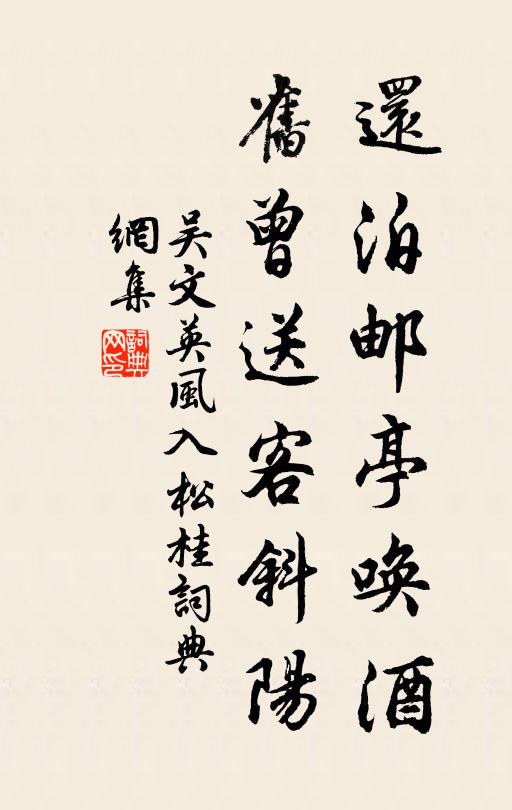 還泊邮亭唤酒
舊曾送客斜陽
吴文英風入松桂詞典
網集
詞典
网印